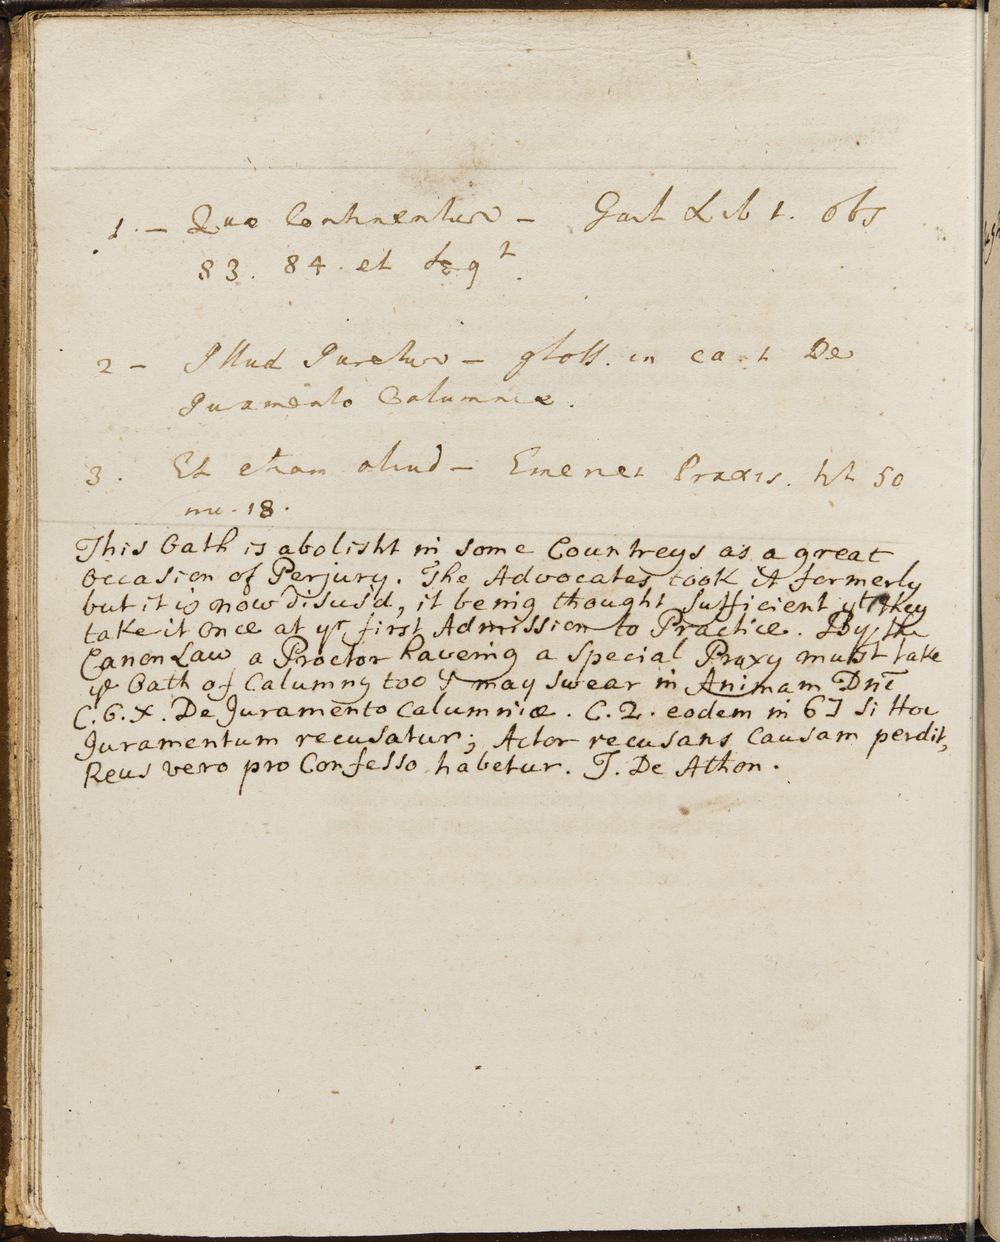 1. – Quæ Continentur – Gail Lib 1. obs
83. 84. et seqt.
2 – Illud Juretur – gloss. in ca. 1 De
Juramento Calumniæ.
3. Et etiam aliud – Praxis. tit 50
nu. 18.
This Oath is abolisht in some Countreys as a great
Occasion of Perjury. The Advocates took it formerly
but it is now disus'd, it being thought sufficient yt they
take it once at yr first Admission to Practice. By the
Canon Law a Proctor havering a special Proxy must take
ye Oath of Calumny too & may swear in Animam Dni
C. 6. X. De Juramento calumniæ. C. 2. eodem in 6
Juramentum recusatur; Actor recusans Causam perdit,
Reus vero pro Confesso habetur. J. De Athon.